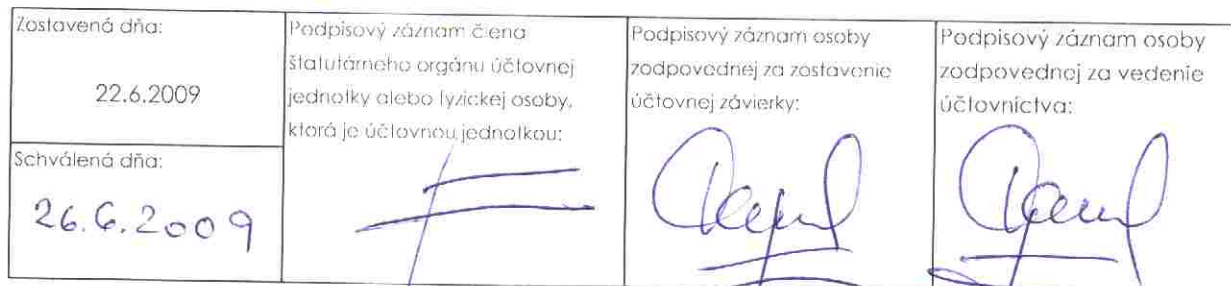 Zostavená dňa:
22.6.2009
Schválená dňa:
26.6.2009
Podpisový záznam člena
štatutárneho orgánu účtovnej
jednotky alebo fyzickej osoby,
ktorá je účtovnou jednotkou:
Podpisový záznam osoby
zodpovednej za zostavenie
účtovnej závierky:
Podpisový záznam osoby
zodpovednej za vedenie
účtovníctva: